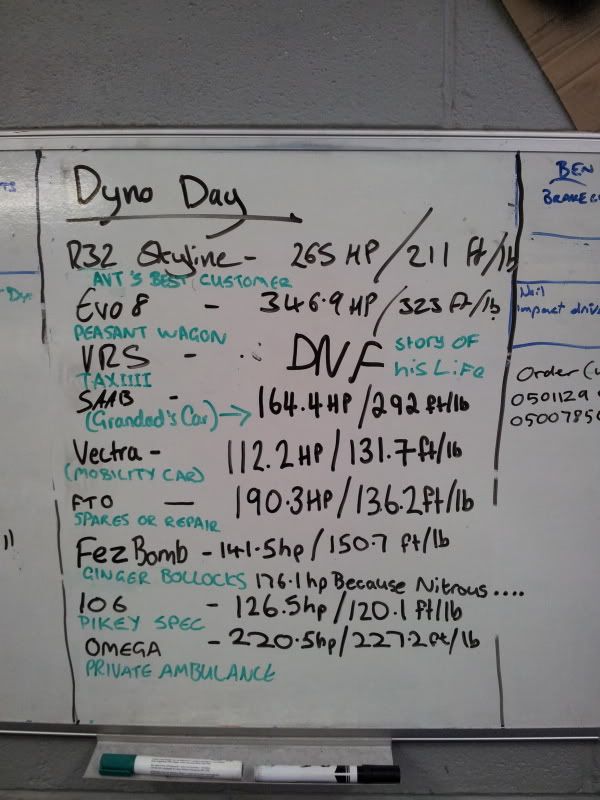 Dyno Day
R32 Skyline - 265 HP / 211 ft/lb
AVT'S BEST CUSTOMER
Evo 8 - 346.9 HP / 323 ft/lb
PEASANT WAGON
VRS - DNF story of his Life
TAXIIII
SAAB - 164.4 HP / 292 ft/lb
(Grandad's Car) →
Vectra - 112.2 HP / 131.7 ft/lb
(MOBILITY CAR)
FTO — 190.3HP / 136.2 ft/lb
SPARES OR REPAIR
Fez Bomb - 141.5hp / 150.7 ft/lb
GINGER BOLLOCKS 176.1hp Because Nitrous ....
106 - 126.5hp / 120.1 ft/lb
PIKEY SPEC
OMEGA - 220.5hp / 227.2 ft/lb
PRIVATE AMBULANCE
BEN
Neil
impact
Order
0501129